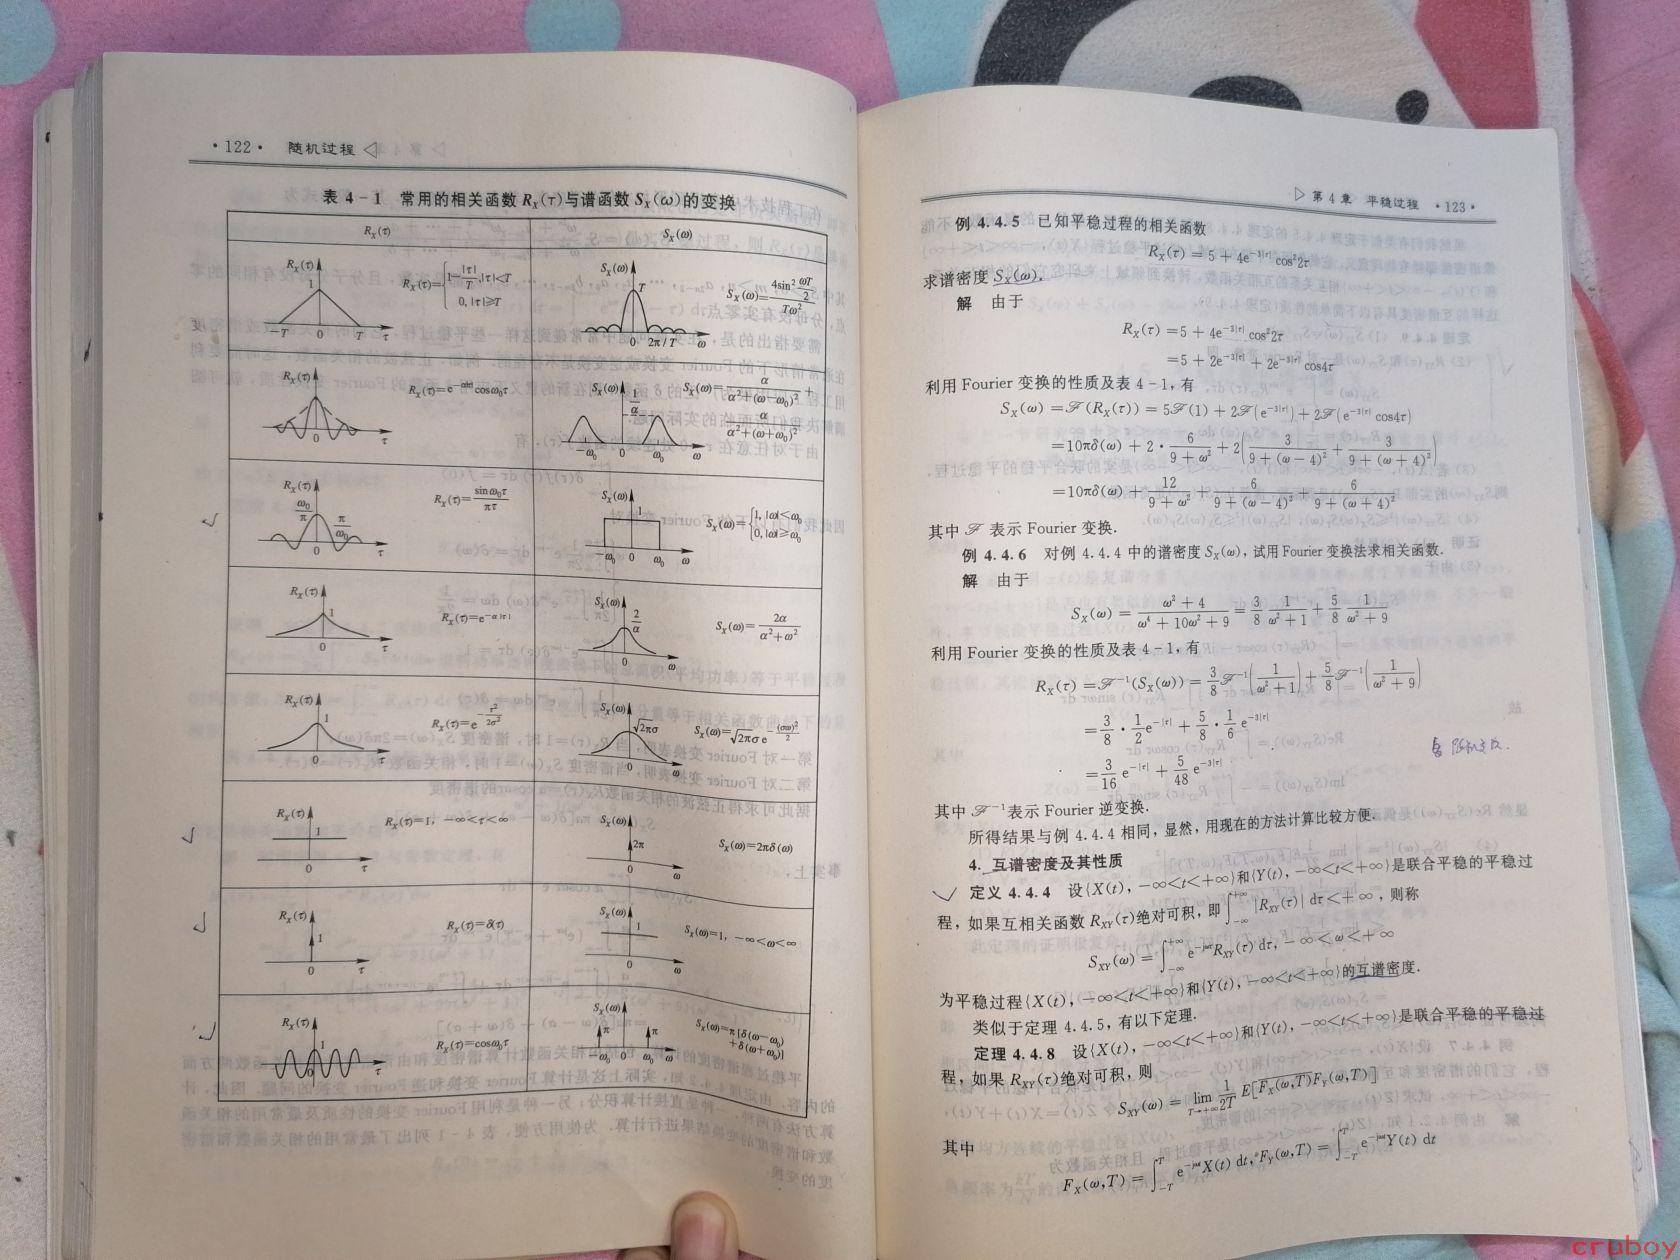 ·122· 随机过程 ◁
表 4-1 常用的相关函数 R_X(τ)与谱函数 S_X(ω)的变换
R_X(τ) S_X(ω)
R_X(τ) 1 -T 0 T τ R_X(τ)={1-|τ|/T, |τ|<T; 0, |τ|≥T S_X(ω) T 0 2π/T ω S_X(ω)=4sin²(ωT/2)/(Tω²)
R_X(τ) 1 0 τ R_X(τ)=e^{-α|τ|}cosω₀τ S_X(ω) 1/α -ω₀ 0 ω₀ ω S_X(ω)=α/(α²+(ω-ω₀)²)+α/(α²+(ω+ω₀)²)
R_X(τ) ω₀/π π/ω₀ 0 τ R_X(τ)=sinω₀τ/(πτ) S_X(ω) 1 -ω₀ 0 ω₀ ω S_X(ω)={1, |ω|<ω₀; 0, |ω|≥ω₀
R_X(τ) 1 0 τ R_X(τ)=e^{-α|τ|} S_X(ω) 2/α 0 ω S_X(ω)=2α/(α²+ω²)
R_X(τ) 1 0 τ R_X(τ)=e^{-τ²/2σ²} S_X(ω) √2πσ 0 ω S_X(ω)=√2πσe^{-(σω)²/2}
R_X(τ) 1 0 τ R_X(τ)=1, -∞<τ<∞ S_X(ω) 2π 0 ω S_X(ω)=2πδ(ω)
R_X(τ) 1 0 τ R_X(τ)=δ(τ) S_X(ω) 1 0 ω S_X(ω)=1, -∞<ω<∞
R_X(τ) 1 0 τ R_X(τ)=cosω₀τ S_X(ω) π π -ω₀ 0 ω₀ ω S_X(ω)=π[δ(ω-ω₀)+δ(ω+ω₀)]
▷ 第 4 章 平稳过程 ·123·
例 4.4.5 已知平稳过程的相关函数
R_X(τ) = 5 + 4e^{-3|τ|} cos²2τ
求谱密度 S_X(ω).
解 由于
R_X(τ) = 5 + 4e^{-3|τ|} cos²2τ
= 5 + 2e^{-3|τ|} + 2e^{-3|τ|} cos4τ
利用 Fourier 变换的性质及表 4-1, 有
S_X(ω) = ℱ(R_X(τ)) = 5ℱ(1) + 2ℱ(e^{-3|τ|}) + 2ℱ(e^{-3|τ|} cos4τ)
= 10πδ(ω) + 2·6/(9+ω²) + 2(3/(9+(ω-4)²) + 3/(9+(ω+4)²))
= 10πδ(ω) + 12/(9+ω²) + 6/(9+(ω-4)²) + 6/(9+(ω+4)²)
其中 ℱ 表示 Fourier 变换.
例 4.4.6 对例 4.4.4 中的谱密度 S_X(ω), 试用 Fourier 变换法求相关函数.
解 由于
S_X(ω) = (ω²+4)/(ω⁴+10ω²+9) = 3/8 1/(ω²+1) + 5/8 1/(ω²+9)
利用 Fourier 变换的性质及表 4-1, 有
R_X(τ) = ℱ⁻¹(S_X(ω)) = 3/8 ℱ⁻¹(1/(ω²+1)) + 5/8 ℱ⁻¹(1/(ω²+9))
= 3/8·1/2 e^{-|τ|} + 5/8·1/6 e^{-3|τ|}
= 3/16 e^{-|τ|} + 5/48 e^{-3|τ|}
其中 ℱ⁻¹ 表示 Fourier 逆变换.
所得结果与例 4.4.4 相同, 显然, 用现在的方法计算比较方便.
4. 互谱密度及其性质
定义 4.4.4 设{X(t), -∞<t<+∞}和{Y(t), -∞<t<+∞}是联合平稳的平稳过
程, 如果互相关函数 R_XY(τ)绝对可积, 即∫_{-∞}^{+∞} |R_XY(τ)| dτ<+∞, 则称
S_XY(ω) = ∫_{-∞}^{+∞} e^{-jωτ}R_XY(τ) dτ, -∞<ω<+∞
为平稳过程{X(t), -∞<t<+∞}和{Y(t), -∞<t<+∞}的互谱密度.
类似于定理 4.4.5, 有以下定理.
定理 4.4.8 设{X(t), -∞<t<+∞}和{Y(t), -∞<t<+∞}是联合平稳的平稳过
程, 如果 R_XY(τ)绝对可积, 则
S_XY(ω) = lim_{T→+∞} 1/2T E[F̅_X̅(̅ω̅,̅T̅)̅F_Y(ω,T)]
其中
F_X(ω,T) = ∫_{-T}^{T} e^{-jωt}X(t) dt, F_Y(ω,T) = ∫_{-T}^{T} e^{-jωt}Y(t) dt
cruboy